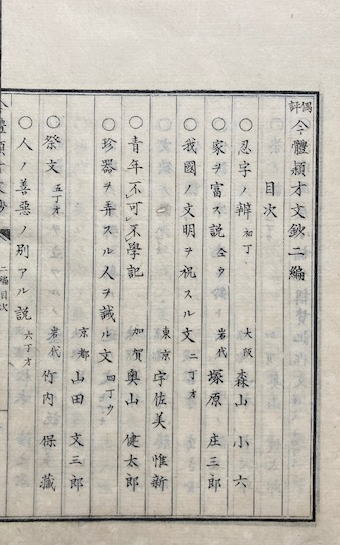 偶評今體穎才文鈔二編
目次
〇忍字ノ辨 初丁 大阪 森山小六
〇家ヲ富ス説 仝ウ 岩代 塚原庄三郎
〇我國ノ文明ヲ祝スル文 二丁オ 東京 宇佐美惟新
〇青年不可レ不レ學記 加賀 奥山健太郎
〇珍器ヲ弄スル人ヲ誡ル文 四丁ウ 京都 山田文三郎
〇祭文 五丁オ 岩代 竹内保藏
〇人ノ善惡ノ別アル説 六丁オ
二編目次